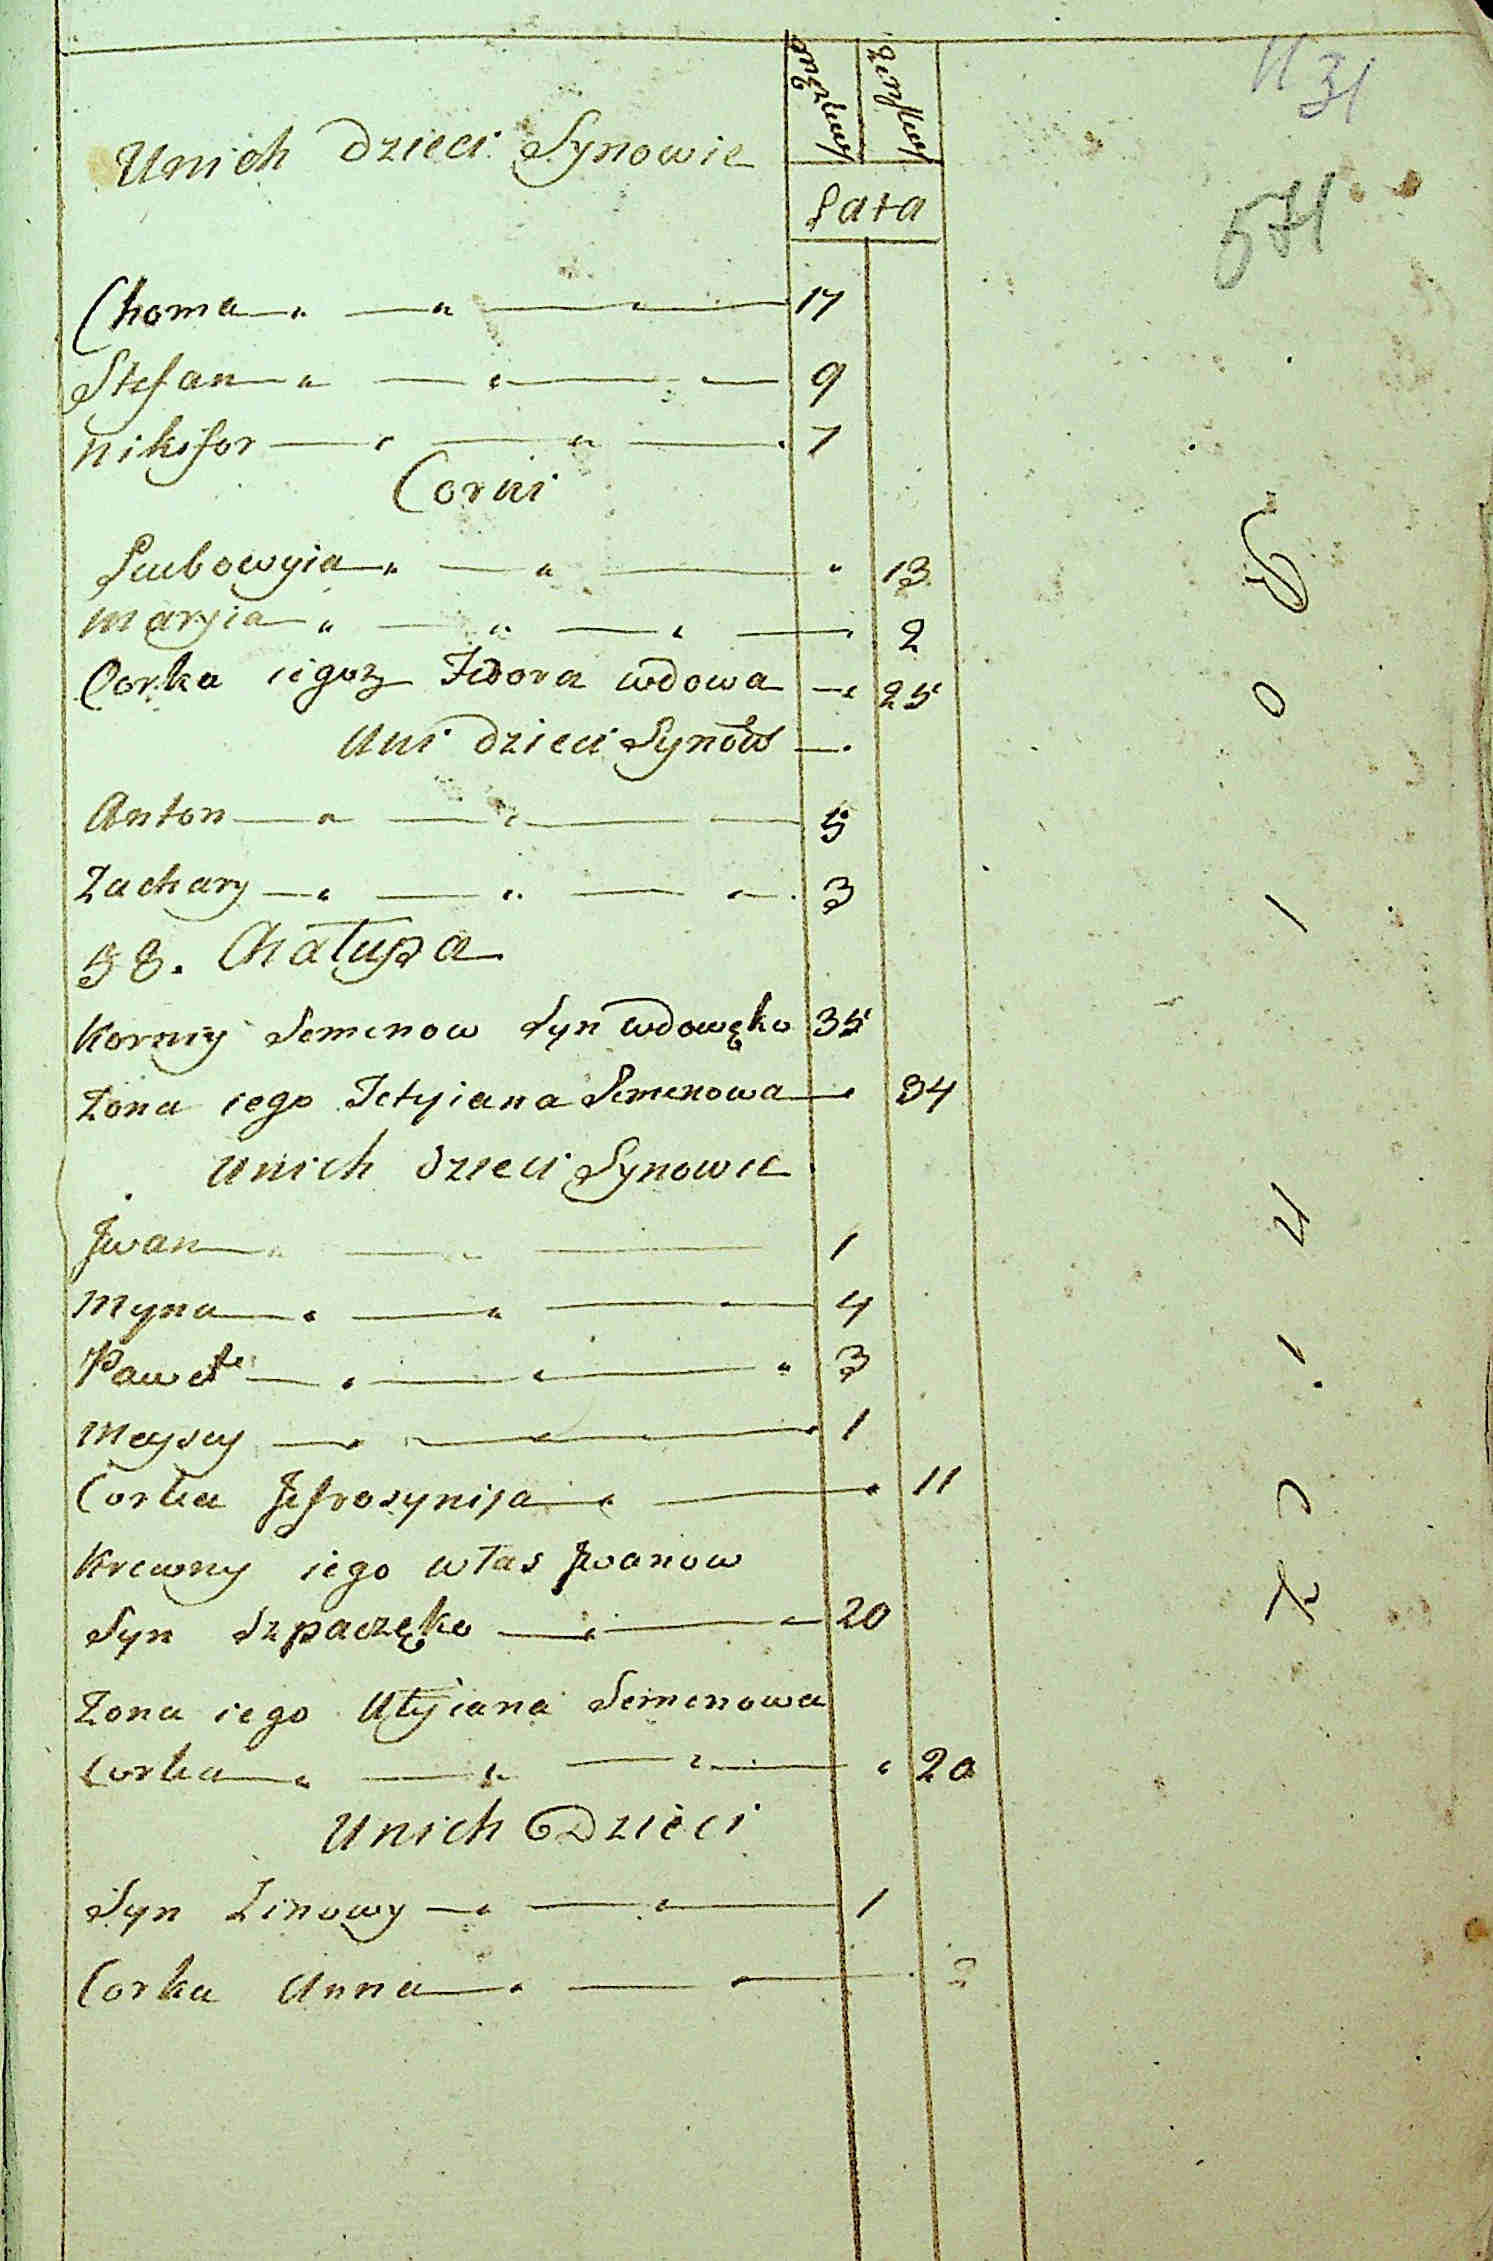 Unich Dzieci Synowie
Lata
Choma 17
Stefan 9
Nikifor 7
Corki
Lubowyia 13
Maryia 2
Corka iegoz Fedora wdowa 25
Uni dzieci Synow
Anton 5
Zachary 3
58. Chałupa
Korniy Semenow Syn wdowęko 35
Zona iego Tetyiana Semenowa 34
Unich dzieci Synowie
Jwan 1
Myna 4
Paweł 3
Moysey 1
Corka Jefrosynija 11
Krewny iego własJwanow
Syn Szpaczęko 20
Zona iego Ulyiana Semenowa
Corka 20
Unich Dzieci
Syn Zinowy 1
Corka Anna 2
31
571